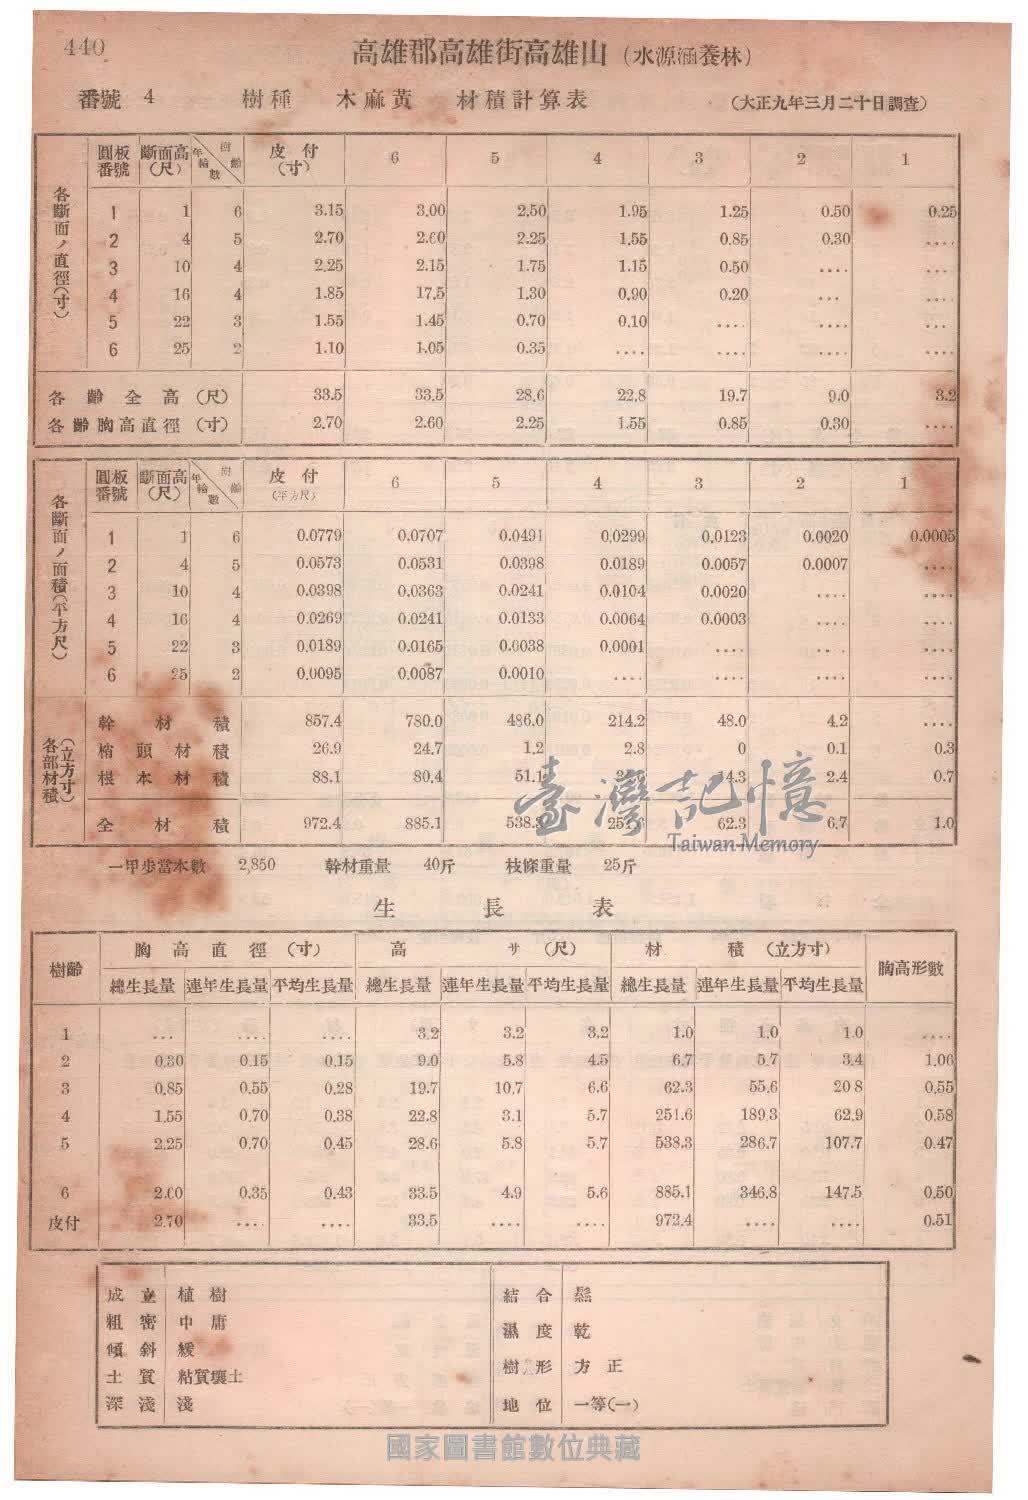 440
高雄郡高雄街高雄山 (水源涵養林)
番號 4 樹種 木麻黃 材積計算表 (大正九年三月二十日調査)
各斷面ノ直徑(寸)
圓板番號 斷面高(尺) 年輪數 樹齡 皮付(寸) 6 5 4 3 2 1
1 1 6 3.15 3.00 2.50 1.95 1.25 0.50 0.25
2 4 5 2.70 2.60 2.25 1.55 0.85 0.30 ....
3 10 4 2.25 2.15 1.75 1.15 0.50 .... ....
4 16 4 1.85 17.5 1.30 0.90 0.20 ... ....
5 22 3 1.55 1.45 0.70 0.10 .... .... ...
6 25 2 1.10 1.05 0.35 .... .... .... ....
各齡全高(尺) 33.5 33.5 28.6 22.8 19.7 9.0 3.2
各齡胸高直徑(寸) 2.70 2.60 2.25 1.55 0.85 0.30 ....
各斷面ノ面積(平方尺)
圓板番號 斷面高(尺) 年輪數 樹齡 皮付(平方尺) 6 5 4 3 2 1
1 1 6 0.0779 0.0707 0.0491 0.0299 0.0123 0.0020 0.0005
2 4 5 0.0573 0.0531 0.0398 0.0189 0.0057 0.0007 ....
3 10 4 0.0398 0.0363 0.0241 0.0104 0.0020 .... ....
4 16 4 0.0269 0.0241 0.0133 0.0064 0.0003 .... ....
5 22 3 0.0189 0.0165 0.0038 0.0001 .... .... ....
6 25 2 0.0095 0.0087 0.0010 .... .... .... ....
各部材積(立方寸)
幹材積 857.4 780.0 486.0 214.2 48.0 4.2 ....
梢頭材積 26.9 24.7 1.2 2.8 0 0.1 0.3
根本材積 88.1 80.4 51.1 4.3 2.4 0.7
全材積 972.4 885.1 538.3 251.6 62.3 6.7 1.0
臺灣記憶
Taiwan Memory
一甲步當本數 2,850 幹材重量 40斤 枝條重量 25斤
生長表
樹齡 胸高直徑(寸) 高サ(尺) 材積(立方寸) 胸高形數
總生長量 連年生長量 平均生長量 總生長量 連年生長量 平均生長量 總生長量 連年生長量 平均生長量
1 ... .... .... 3.2 3.2 3.2 1.0 1.0 1.0 ....
2 0.30 0.15 0.15 9.0 5.8 4.5 6.7 5.7 3.4 1.06
3 0.85 0.55 0.28 19.7 10.7 6.6 62.3 55.6 20 8 0.55
4 1.55 0.70 0.38 22.8 3.1 5.7 251.6 189.3 62.9 0.58
5 2.25 0.70 0.45 28.6 5.8 5.7 538.3 286.7 107.7 0.47
6 2.60 0.35 0.43 33.5 4.9 5.6 885.1 346.8 147.5 0.50
皮付 2.70 .... .... 33.5 .... .... 972.4 .... .... 0.51
成立 植樹
粗密 中庸
傾斜 緩
土質 粘質壤土
深淺 淺
結合 鬆
濕度 乾
樹形 方正
地位 一等(一)
國家圖書館數位典藏